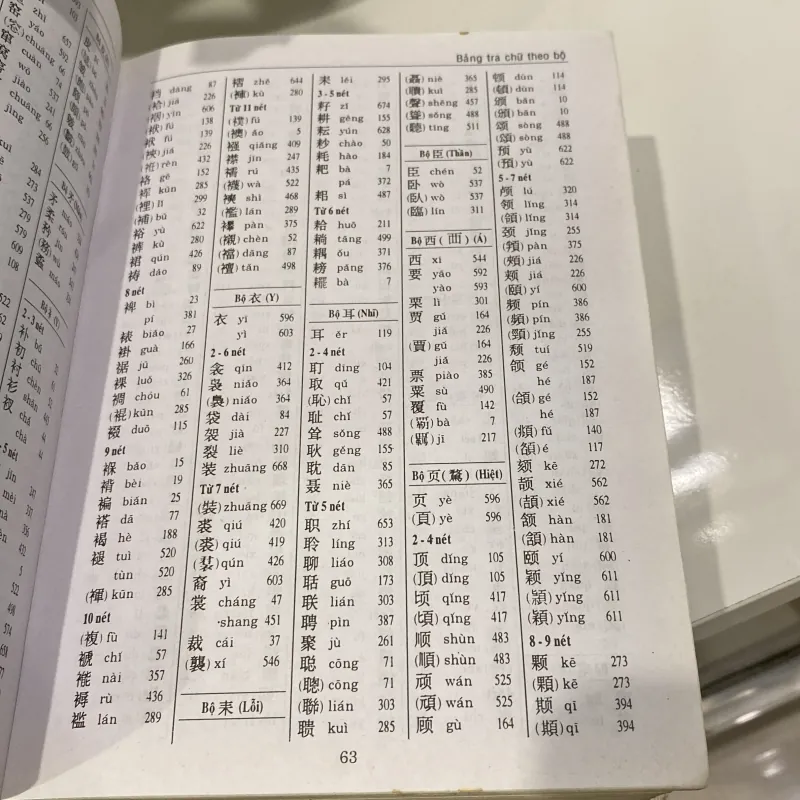 Bảng tra chữ theo bộ
裆 dāng 87
(袷) jiá 226
(裀) yīn 606
(袱) fú 138
袱 fú 139
(裌) jiá 226
(袵) rèn 432
袼 gē 152
裈 kūn 285
(裡) lǐ 299
(補) bǔ 32
裕 yù 622
裤 kù 280
裙 qún 426
祷 dǎo 89
8 nét
裨 bì 23
pí 381
裱 biǎo 27
褂 guà 166
裾 jū 260
裸 luǒ 326
裯 chóu 61
(裩) kūn 285
裰 duō 115
9 nét
褓 bǎo 15
褙 bèi 19
褊 biǎn 25
褡 dā 77
褐 hè 188
褪 tuì 520
tùn 520
(褌) kūn 285
10 nét
(複) fù 141
褫 chǐ 57
褦 nài 357
褥 rù 436
褴 lán 289
褶 zhě 644
(褲) kù 280
Từ 11 nét
(襆) fú 139
(襖) ǎo 5
襁 qiǎng 409
襟 jīn 247
襦 rú 435
(襪) wà 522
襫 shì 468
(襤) lán 289
襻 pàn 375
(襯) chèn 52
(襠) dāng 87
(襢) tǎn 498
Bộ 衣 (Y)
衣 yī 596
yì 603
2 - 6 nét
衾 qīn 412
袅 niǎo 364
(裊) niǎo 364
袋 dài 84
袈 jiā 227
裂 liè 310
装 zhuāng 668
Từ 7 nét
(裝) zhuāng 669
裘 qiú 420
(裘) qiú 419
(裠) qún 426
裔 yì 603
裳 cháng 47
·shang 451
裁 cái 37
(襲) xí 546
Bộ 耒 (Lỗi)
耒 lěi 295
3 - 5 nét
籽 zǐ 674
耕 gēng 155
耘 yún 628
耖 chào 50
耗 hào 184
耙 bà 7
pá 372
耜 sì 487
Từ 6 nét
耠 huō 211
耥 tāng 499
耦 ǒu 371
耪 pǎng 376
耀 bà 7
Bộ 耳 (Nhĩ)
耳 ěr 119
2 - 4 nét
耵 dīng 104
取 qǔ 421
(恥) chǐ 57
耻 chǐ 57
耸 sǒng 488
耿 gěng 155
耽 dān 85
聂 niè 365
Từ 5 nét
职 zhí 653
聆 líng 313
聊 liáo 308
聒 guō 173
联 lián 303
聘 pìn 387
聚 jù 261
聪 cōng 71
(聰) cōng 71
(聯) lián 303
聩 kuì 285
(聶) niè 365
(聵) kuì 285
(聲) shēng 457
(聳) sǒng 488
(聽) tīng 511
Bộ 臣 (Thần)
臣 chén 52
卧 wò 537
(臥) wò 537
(臨) lín 311
Bộ 西 (覀) (Á)
西 xī 544
要 yāo 592
yào 593
栗 lì 301
贾 gǔ 164
jiǎ 226
(賈) gǔ 164
jiǎ 226
票 piào 385
粟 sù 490
覆 fù 142
(覇) bà 7
(羈) jī 217
Bộ 页 (頁) (Hiệt)
页 yè 596
(頁) yè 596
2 - 4 nét
顶 dǐng 105
(頂) dǐng 105
顷 qǐng 417
(頃) qǐng 417
顺 shùn 483
(順) shùn 483
顽 wán 525
(頑) wán 525
顾 gù 164
顿 dùn 114
(頓) dùn 114
颁 bān 10
(頒) bān 10
颂 sòng 488
(頌) sòng 488
预 yù 622
(預) yù 622
5 - 7 nét
颅 lú 320
领 lǐng 314
(領) lǐng 314
颈 jǐng 255
(頖) pàn 375
(頰) jiá 226
颊 jiá 226
(頤) yí 600
频 pín 386
(頻) pín 386
(頸) jǐng 255
颓 tuí 519
颌 gé 152
hé 187
(頜) gé 152
hé 187
(頫) fǔ 140
(頞) é 117
颏 kē 272
颉 xié 562
(頡) xié 562
颔 hàn 181
(頷) hàn 181
颐 yí 600
颖 yǐng 611
(潁) yǐng 611
(穎) yǐng 611
8 - 9 nét
颗 kē 273
(顆) kē 273
颀 qī 394
(頎) qī 394
63